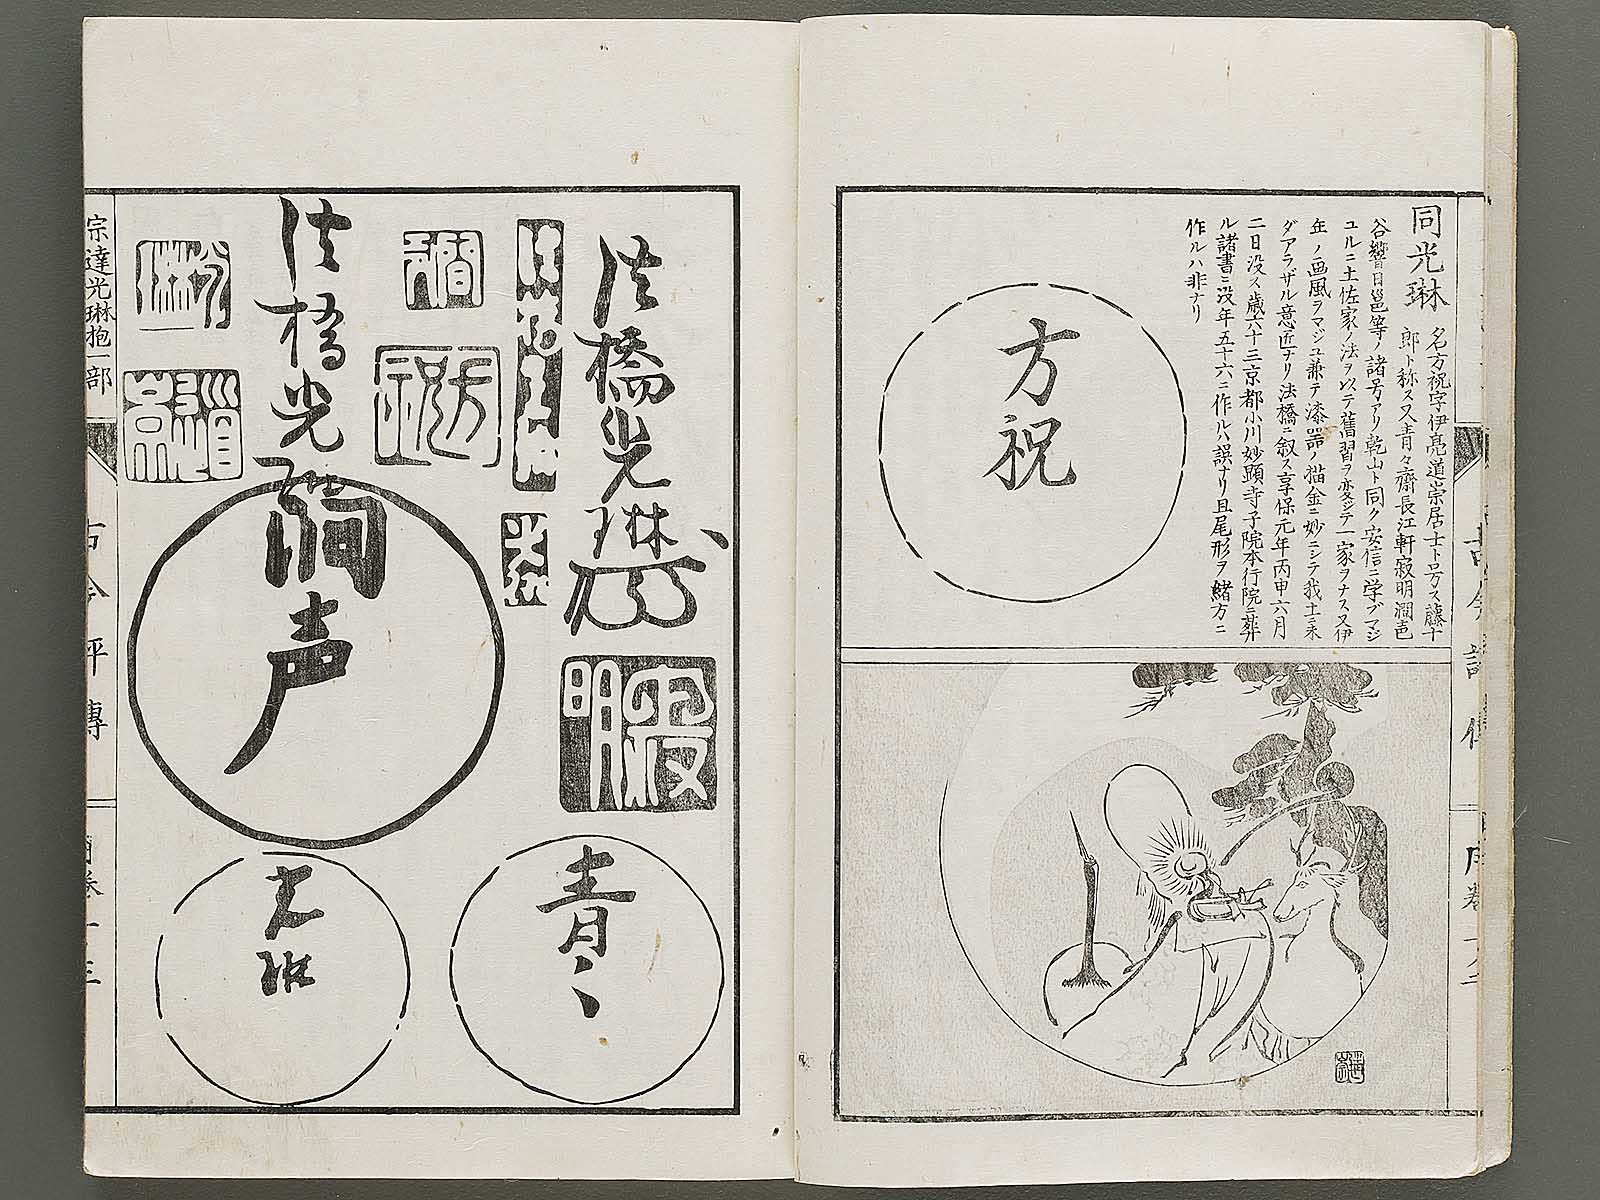 同光琳
名方祝字伊亮道崇居士ト号ス藤十
郎ト称ス又青々齋長江軒寂明澗声
谷響日𮛫等ノ諸号アリ乾山ト同ク安信ニ学ブマジ
ユルニ土佐家ノ法ヲ以テ舊習ヲ変シテ一家ヲナス又伊
年ノ画風ヲマジユ兼テ漆器ノ描金ニ妙ニシテ我土ニ未
ダアラザル意匠ナリ法橋ニ叙ス享保元年丙申六月
二日没ス歳六十三京都小川妙顕寺子院本行院ニ葬
ル諸書ニ没年五十六ニ作ルハ誤ナリ且尾形ヲ緒方ニ
作ルハ非ナリ
方祝
道崇
法橋光琳
寂明
青々
澗声
法橋光琳
方祝
道崇
宗達光琳抱一部
古今評傳